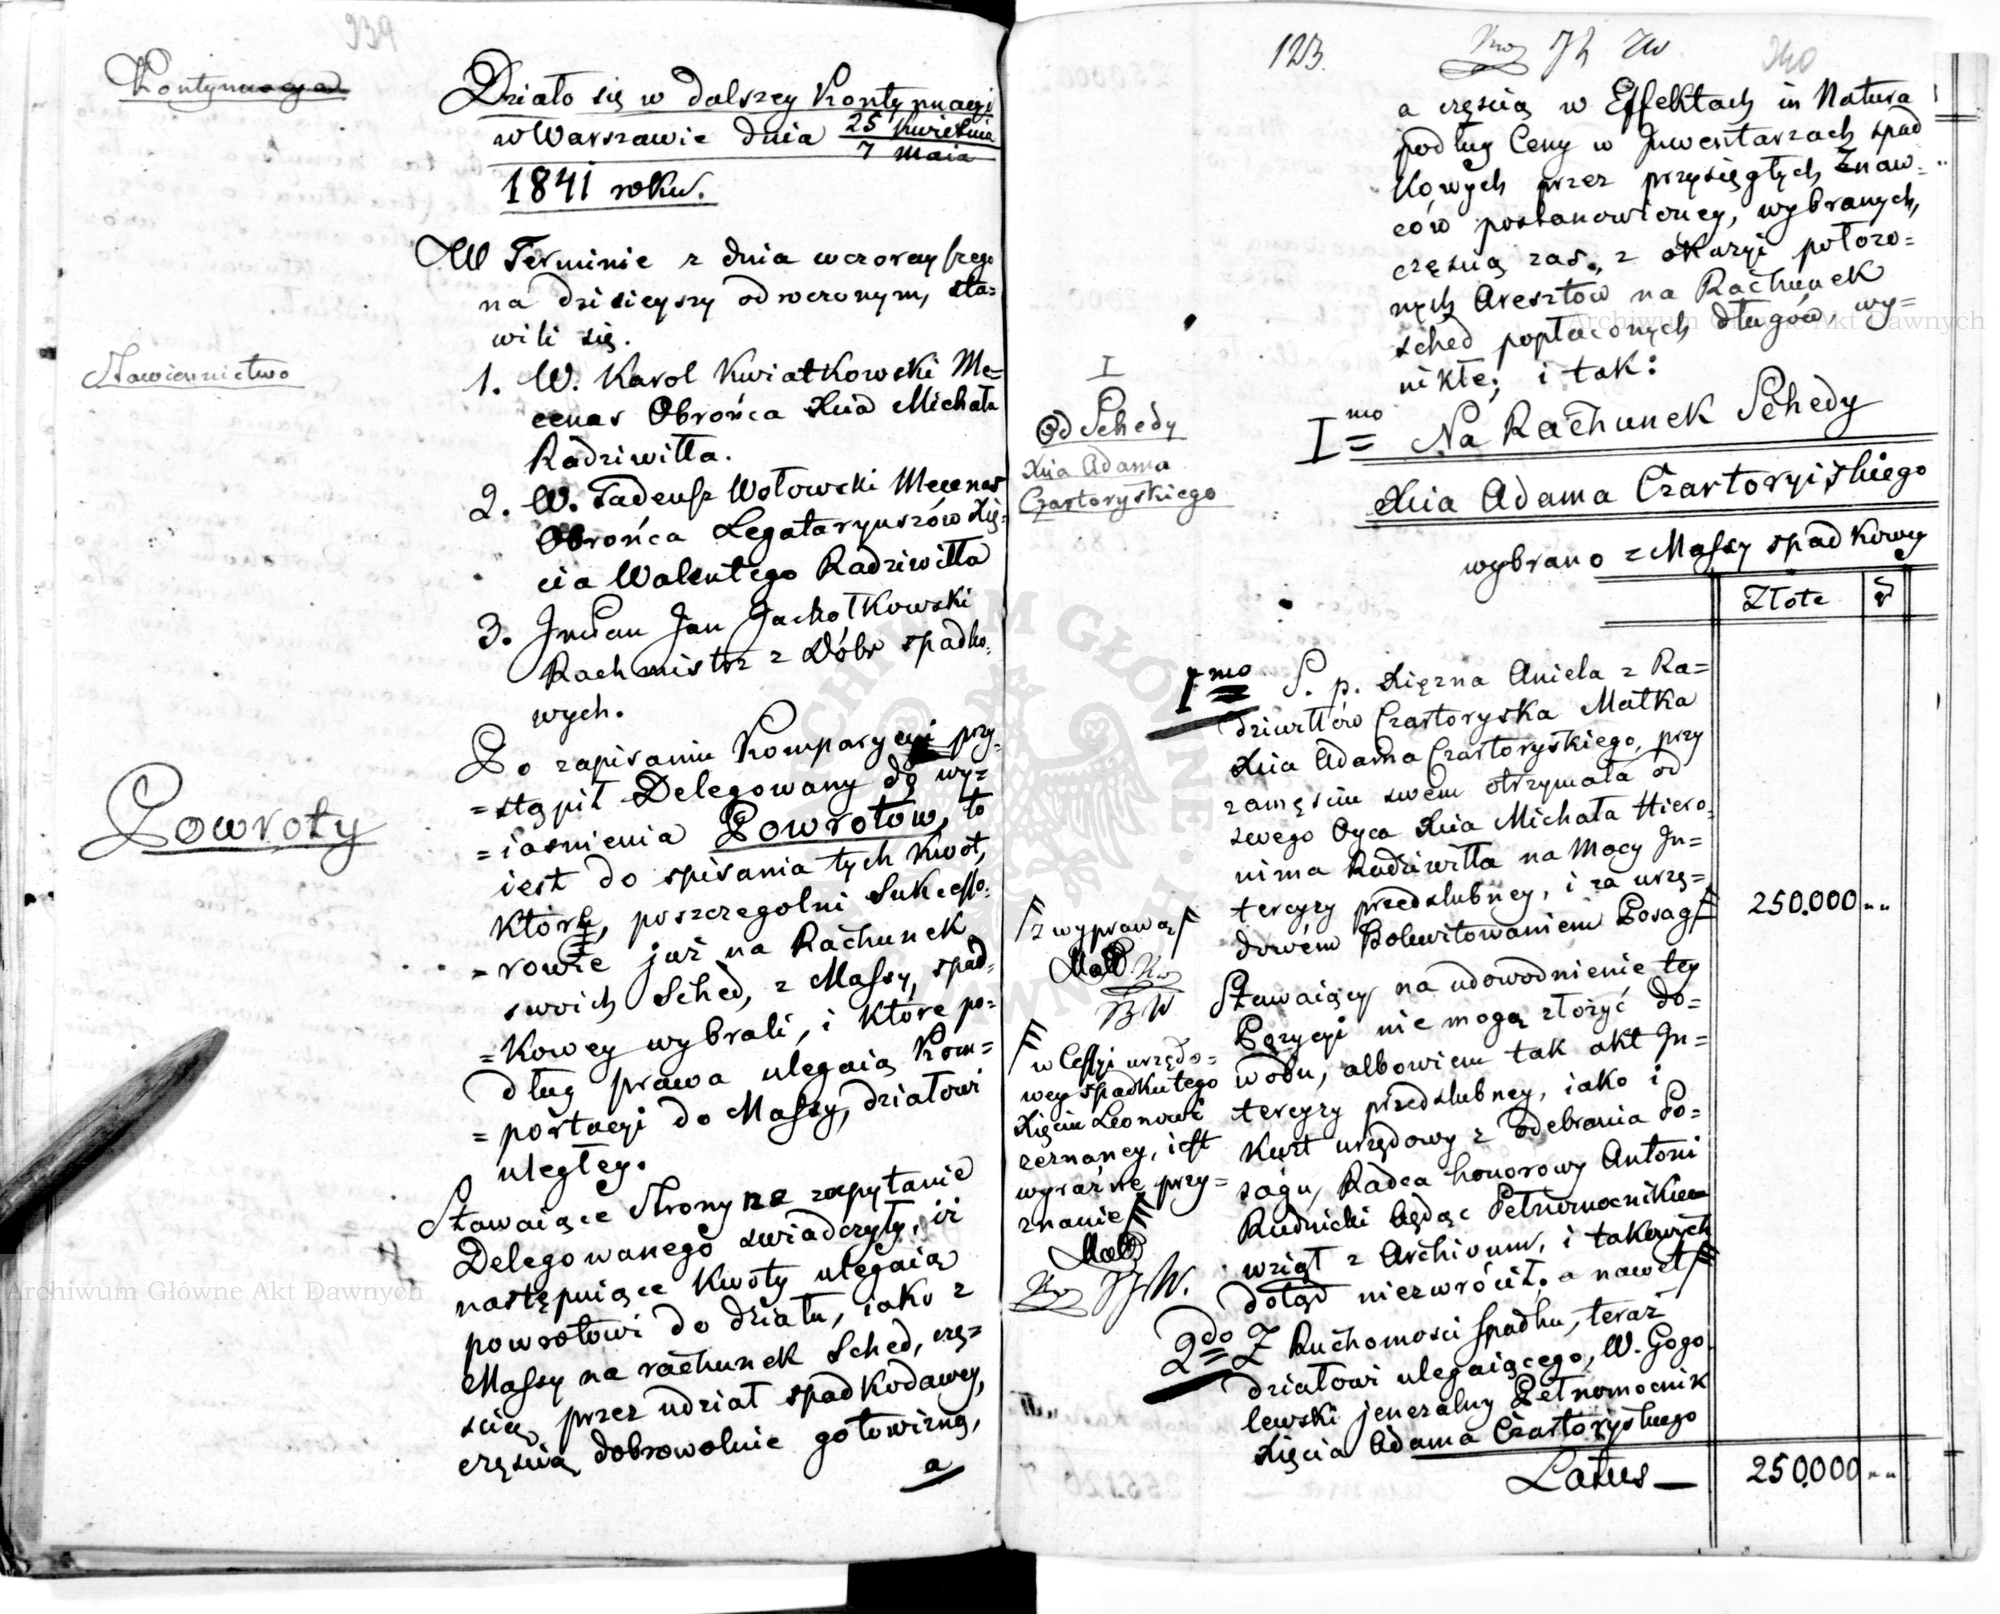 939
Kontynuacya
Działo się w dalszey Kontynuacyi
w Warszawie dnia 25 Kwietnia
7 Maia
1841 roku.
W Terminie z dnia wczorayszego
na dzisieyszy odroczonym, sta=
wili się.
Stawiennictwo
1. W. Karol Kwiatkowski Me=
cenas Obrońca Xcia Michała
Radziwiłła.
2. W. Tadeusz Wołowski Mecenas
Obrońca Legataryuszów Xię=
cia Walentego Radziwiłła
3. Jmć Pan Jan Jachołkowski
Rachmistrz z Dóbr spadko=
wych.
Po zapisaniu Komparycyi przy=
=stąpił Delegowany do wy=
Powroty
=iaśnienia Powrotów, to
iest do spisania tych Kwot,
które, poszczegolni Sukcesso=
=rowie już na Rachunek
swoich Sched, z Massy, spad=
=kowey wybrali, i które po=
dług prawa ulegaią Kom=
=portacyi do Massy, działowi
uległey.
Stawaiące Strony na zapytanie
Delegowanego świadczyły, iż
następuiące Kwoty ulegaią
powrotowi do działu, iako z
Massy na rachunek Sched, czę=
ścią, przez udział spadkodawcy,
częścią dobrowolnie gotowizną,
a
123.
940
a częścią w Effektach in Natura
podług Ceny w Inwentarzach spad
kowych przez przysięgłych Znaw=
ców postanowioney, wybranych,
częścią zaś, z okazyi położo=
nych Aresztów na Rachunek
sched popłaconych długów, wy=
nikłe; i tak:
I
Od Schedy
Xcia Adama
Czartoryskiego
Imo Na Rachunek Schedy
Xcia Adama Czartoryiskiego
wybrano z Massy spadkowey
Złote
Imo Ś. p. Xiężna Aniela z Ra=
dziwiłłów Czartoryska Matka
Xcia Adama Czartoryskiego, przy
zamęściu swem otrzymała od
swego Oyca Xcia Michała Hiero=
nima Radziwiłła na Mocy In=
tercyzy przedślubney, i za urzę=
dowém Pokwitowaniem Posag 250.000
z wyprawą
Stawaiący na udowodnienie tey
Pozycyi nie mogą złożyć do=
wodu, albowiem tak akt In=
tercyzy przedślubney, iako i
Kwit urzędowy z odebrania Po=
sagu, Radca honorowy Antoni
Rudnicki będąc Pełnomocnikiem
wziął z Archivum, i takowych
dotąd niezwrócił, a nawet
w Cessyi urzędo=
wey spadku tego
Xięciu Leonowi
zeznaney, iest
wyraźne przy=
znanie
2do Z Ruchomości spadku, teraz
działowi ulegaiącego, W. Gogo
lewski jeneralny Pełnomocnik
Xięcia Adama Czartoryskiego
Latus — 250.000
Archiwum Główne Akt Dawnych
Archiwum Główne Akt Dawnych